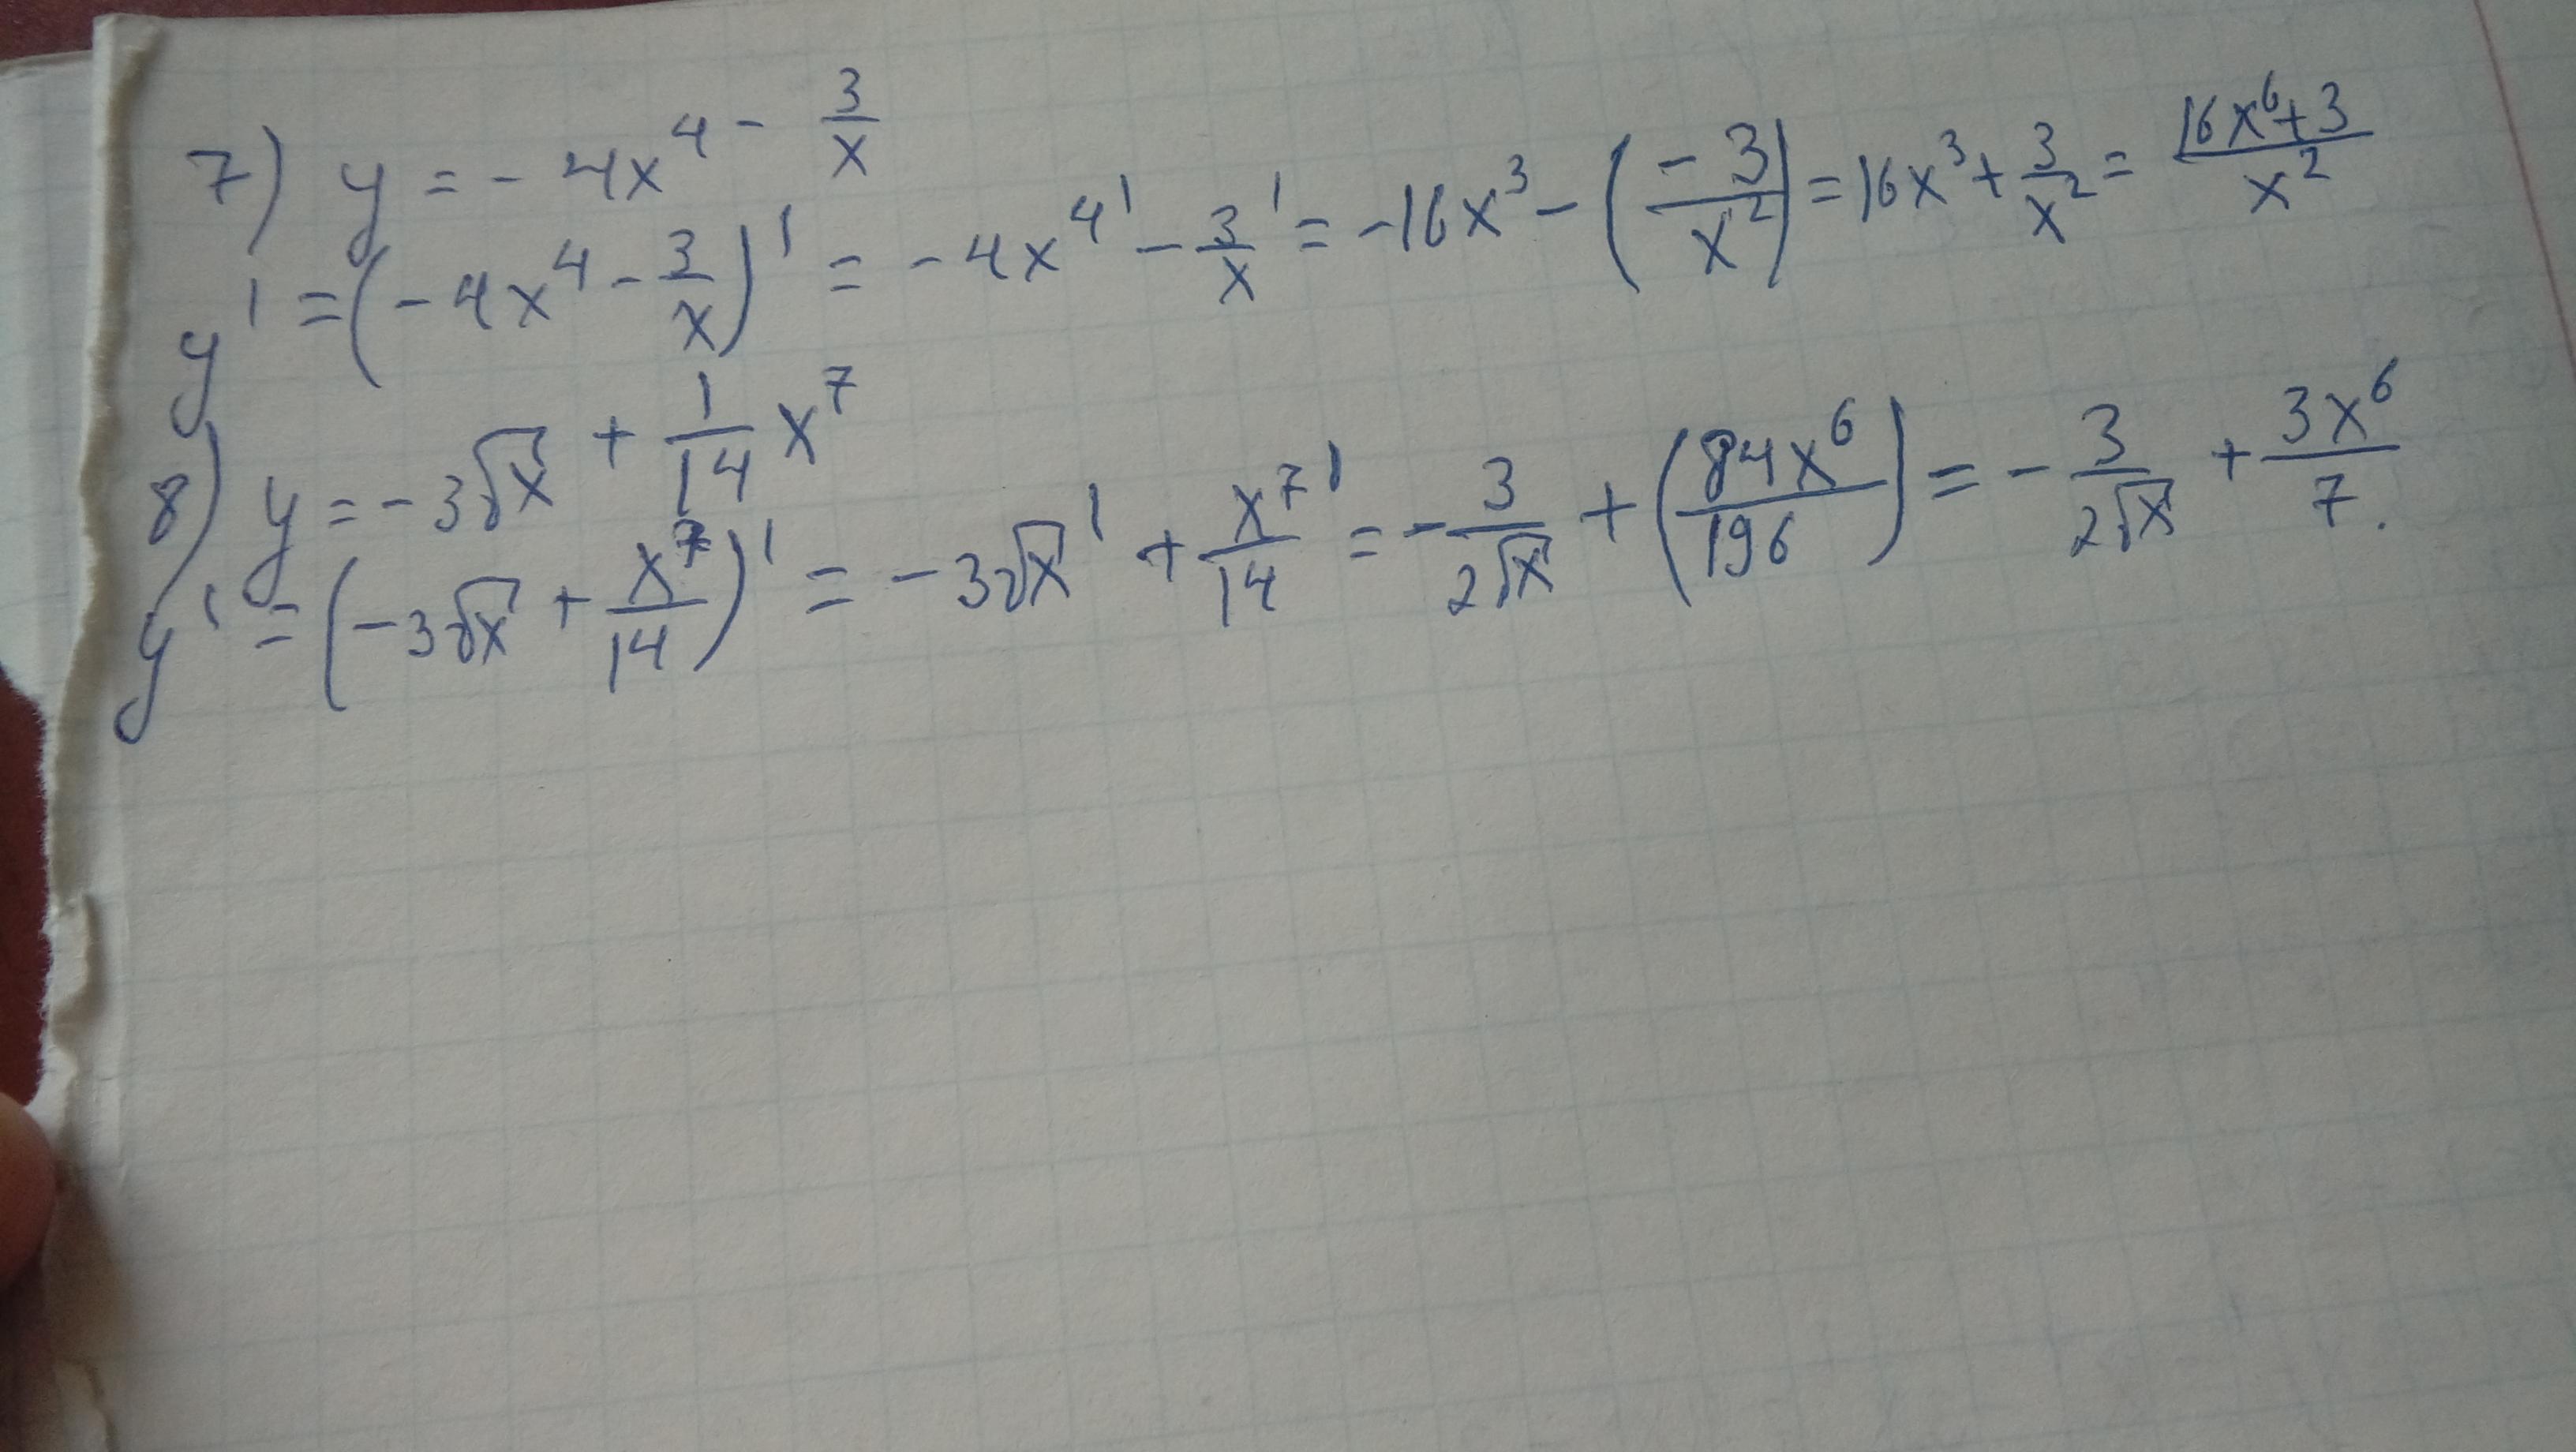 7) y = - 4x⁴ - 3/x
y' = (- 4x⁴ - 3/x)' = - 4x⁴' - 3/x' = -16x³ - (-3/x²) = 16x³ + 3/x² = (16x⁶+3)/x²
8) y = -3√x + 1/14 x⁷
y' = (-3√x + x⁷/14)' = -3√x' + x⁷'/14 = - 3/(2√x) + (84x⁶/196) = - 3/(2√x) + 3x⁶/7.